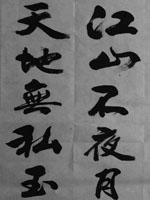 江山不夜月
天地無私玉